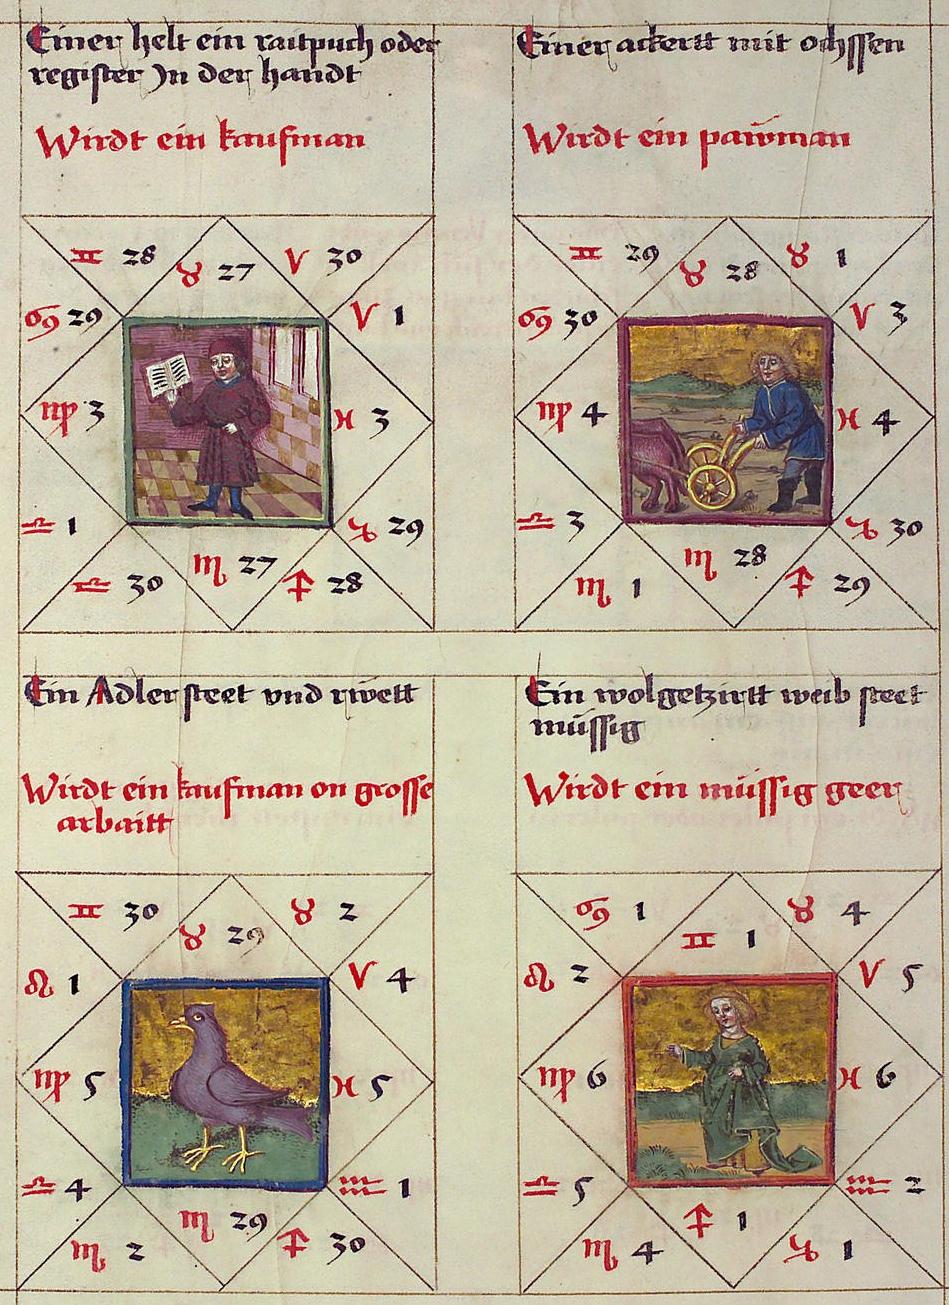 Einer helt ein raitpuch oder
register Jn der handt
Wirdt ein kaufman
♊ 28
♉ 27
♈ 30
♋ 29
♈ 1
♍ 3
♓ 3
♎ 1
♑ 29
♎ 30
♏ 27
♐ 28
Einer ackertt mit ochssen
Wirdt ein pawman
♊ 29
♉ 28
♉ 1
♋ 30
♈ 3
♍ 4
♓ 4
♎ 3
♑ 30
♏ 1
♏ 28
♐ 29
Ein Adler steet vnd rwett
Wirdt ein kaufman on grosse
arbaitt
♊ 30
♉ 29
♉ 2
♌ 1
♈ 4
♍ 5
♓ 5
♎ 4
♒ 1
♏ 2
♏ 29
♐ 30
Ein wolgetzirtt weib steet
müssig
Wirdt ein müssig geer
♋ 1
♊ 1
♉ 4
♌ 2
♈ 5
♍ 6
♓ 6
♎ 5
♒ 2
♏ 4
♐ 1
♑ 1